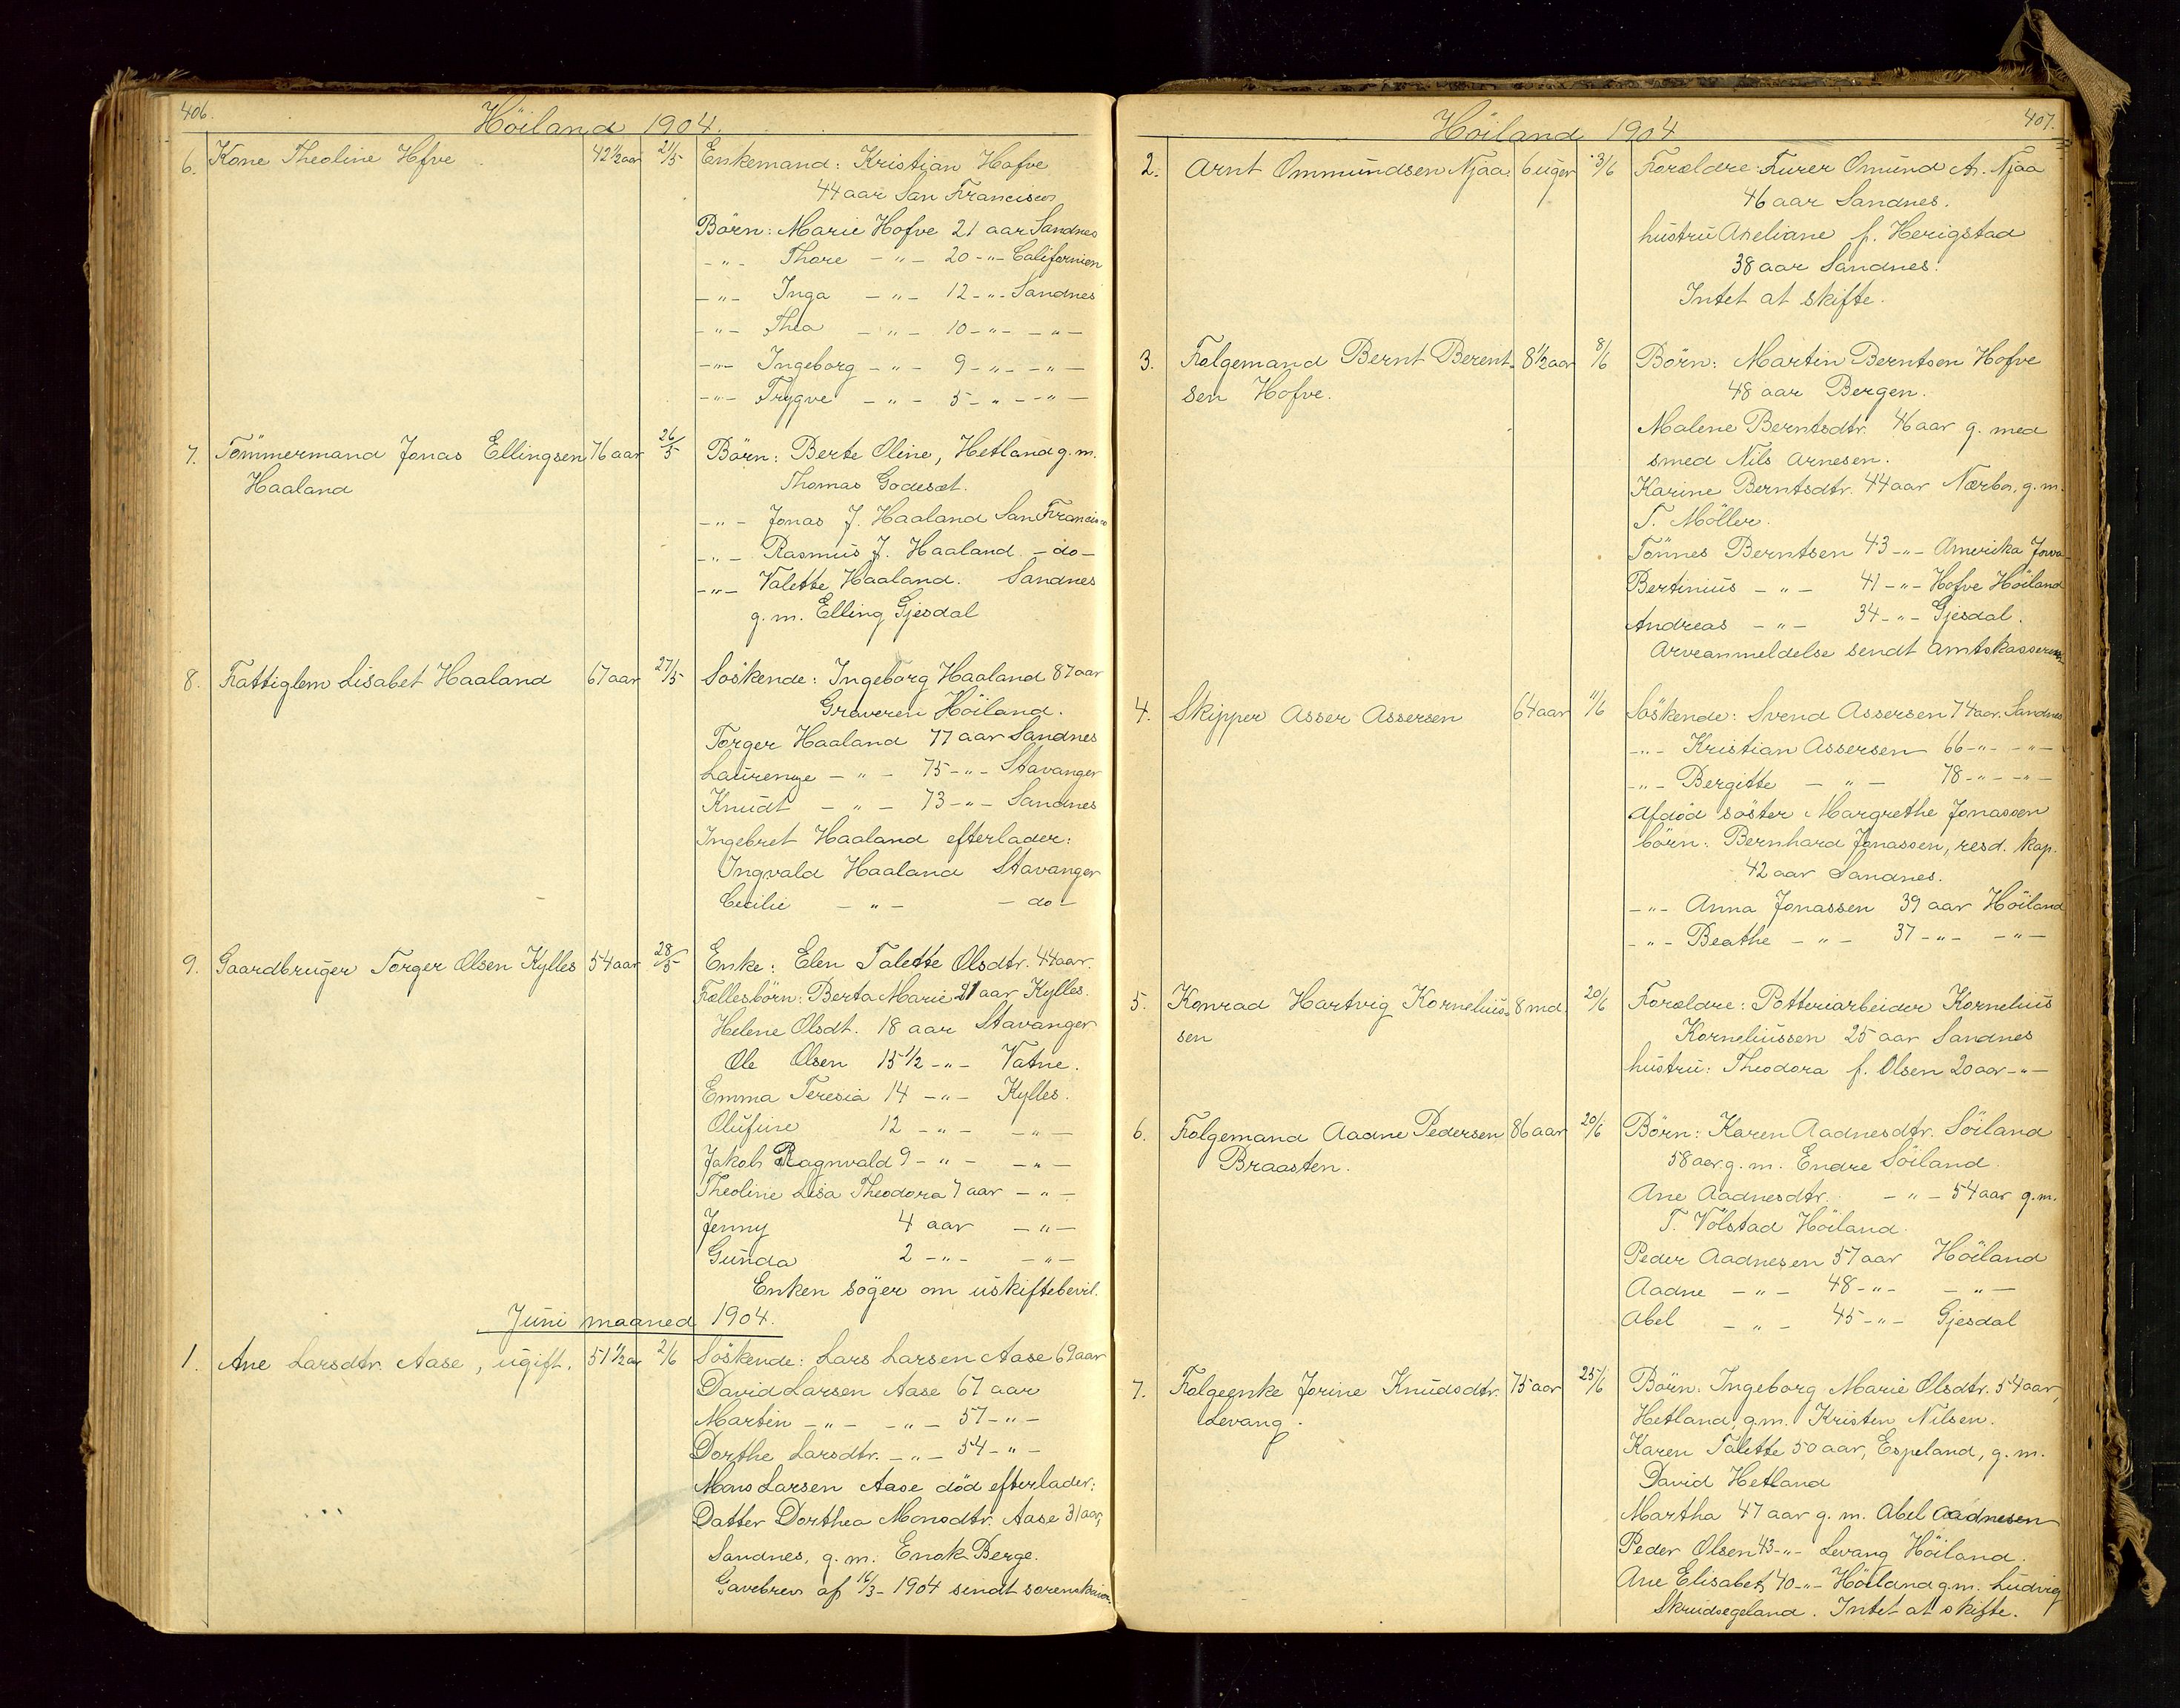 406.
Höiland 1904.
6. Kone Theoline Hfve 42½ aar 21/5 Enkemand: Kristian Hofve
44 aar San Francisco
Börn: Marie Hofve 21 aar Sandnes
-"- Thore -"- 20 -"- Californien
-"- Inga -"- 12 -"- Sandnes
-"- Thea -"- 10 -"- -"-
-"- Ingeborg -"- 9 -"- -"-
-"- Trygve -"- 5 -"- -"-
7. Tömmermand Jonas Ellingsen 76 aar 26/5 Börn: Berte Oline, Hetland g. m.
Haaland Thomas Godeset.
-"- Jonas J. Haaland San Francisco
-"- Rasmus J. Haaland -do-
-"- Valette Haaland. Sandnes
g. m. Elling Gjesdal
8. Fattiglem Lisabet Haaland 67 aar 27/5 Söskende: Ingeborg Haaland 87 aar
Graveren Höiland.
Torger Haaland 77 aar Sandnes
Laurense -"- 75 -"- Stavanger
Knudt -"- 73 -"- Sandnes
Ingebret Haaland efterlader:
Ingvald Haaland Stavanger
Cecilie -"- -do-
9. Gaardbruger Torger Olsen Kylles 54 aar 28/5 Enke: Elen Talette Olsdtr. 44 aar.
Fællesbörn: Berta Marie 21 aar Kylles.
Helene Olsdt. 18 aar Stavanger
Ole Olsen 15 1/2 -"- Vatne.
Emma Teresia 14 -"- Kylles.
Olufine 12 -"- -"-
Jakob Ragnvald 9 -"- -"-
Theoline Lisa Theodora 7 aar -"-
Jenny 4 aar -"-
Gunda 2 -"- -"-
Enken söger om uskiftebevil.
Juni maaned 1904.
1. Ane Larsdtr. Aase, ugift. 51 ½ aar 2/6 Söskende: Lars Larsen Aase 69 aar
David Larsen Aase 67 aar
Martin -"- -"- 57 -"-
Dorthe Larsdtr. -"- 54 -"-
Mons Larsen Aase död efterlader:
Datter Dorthea Monsdtr. Aase 31 aar,
Sandnes, g. m. Enok Berge.
Gavebrev af 16/3- 1904 sendt sorenskriver.
407.
Höiland 1904
2. Arnt Ommundsen Njaa 6 uger 3/6 Forældre: Furer Omund A. Njaa
46 aar Sandnes.
hustru Aneliane f. Herigstad
38 aar Sandnes.
Intet at skifte.
3. Folgemand Bernt Berent- 81½ aar 8/6 Börn: Martin Berntsen Hofve
sen Hofve. 48 aar Bergen.
Malene Berntsdtr. 46 aar g. med
smed Nils Arnesen.
Karine Berntsdtr. 44 aar Nærbo, g. m.
T. Möller.
Tönnes Berntsen 43 -"- Amerika Jowa
Bertinius -"- 41 -"- Hofve Höiland
Andreas -"- 34 -"- Gjesdal.
Arveanmeldelse sendt amtskasseren
4. Skipper Asser Assersen 64 aar 11/6 Söskende: Svend Assersen 74 aar. Sandnes
-"- Kristian Assersen 66 -"- -"-
-"- Bergitte -"- 78 -"- -"-
Afdöd söster Margrethe Jonassen
börn: Bernhard Jonassen, resd. kap.
42 aar Sandnes.
-"- Anna Jonassen 39 aar Höiland
-"- Beathe -"- 37 -"- -"-
5. Konrad Hartvig Kornelius- 8 md. 20/6 Forældre: Potteriarbeider Kornelius
sen Korneliussen 25 aar Sandnes
hustru: Theodora f. Olsen 20 aar -"-
6. Folgemand Aadne Pedersen 86 aar 20/6 Börn: Karen Aadnesdtr. Söiland
Braasten. 58 aar g. m. Endre Söiland.
Ane Aadnesdtr. -"- 54 aar g. m.
T. Volstad Höiland.
Peder Aadnesen 57 aar Höiland
Aadne -"- 48 -"- -"-
Abel -"- 45 -"- Gjesdal
7. Folgeenke Jorine Knudsdtr. 75 aar 25/6 Börn: Ingeborg Marie Olsdtr. 54 aar,
Levang. Hetland, g. m. Kristen Nilsen.
Karen Talette 50 aar, Espeland, g. m.
David Hetland
Martha 47 aar g. m. Abel Aadnesen
Peder Olsen 43 -"- Levang Höiland.
Ane Elisabet 40 -"- Höiland g. m. Ludvig
Skrudsegeland. Intet at skifte.